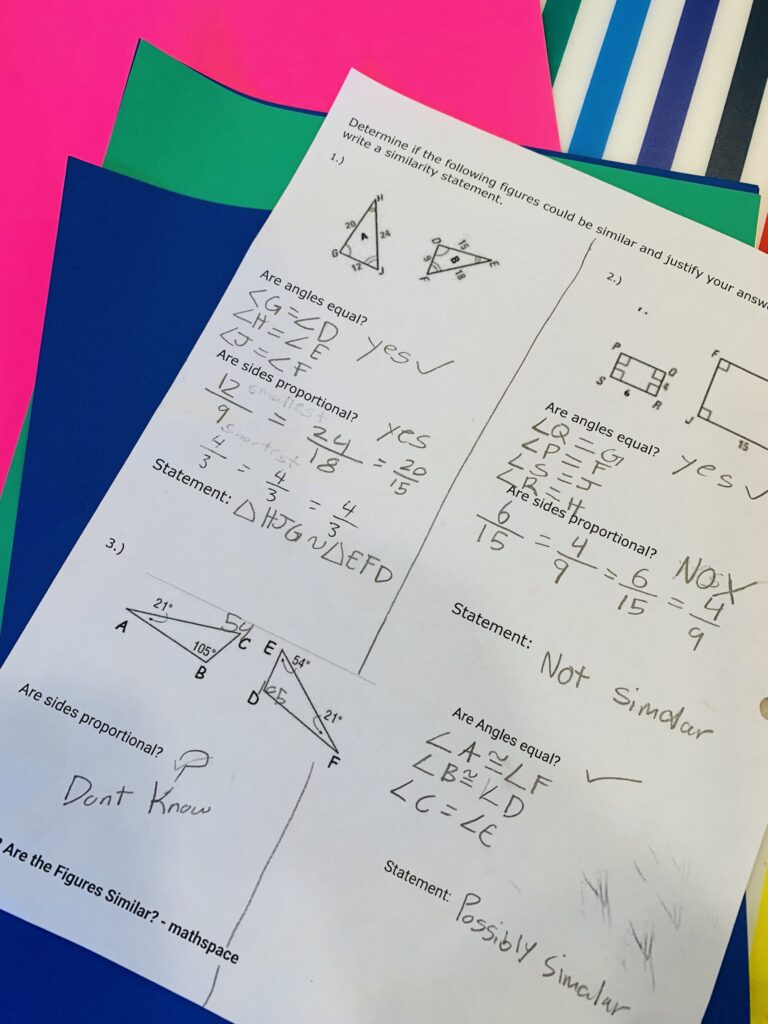 Determine if the following figures could be similar and justify your answ
write a similarity statement.
1.)
H
20
A
24
G
12
J
D
15
E
B
18
F
Are angles equal?
∠G = ∠D
∠H = ∠E
∠J = ∠F
yes ✓
Are sides proportional?
yes
smallest
shortest
12/9 = 24/18 = 20/15
4/3 = 4/3 = 4/3
Statement: △HJG ~ △EFD
2.)
P
Q
4
S
6
R
F
J
15
Are angles equal?
∠Q = G
∠P = F
∠S = J
∠R = H
yes ✓
Are sides proportional?
NO X
6/15 = 4/9 = 6/15 = 4/9
Statement:
Not Simalar
3.)
21°
A
54
C
105°
B
E
54°
D
105
21°
F
Are sides proportional?
?
Dont Know
Are Angles equal?
∠A ≅ ∠F
∠B ≅ ∠D
∠C = ∠E
✓
Statement: Possibly Simalar
Are the Figures Similar? - mathspace